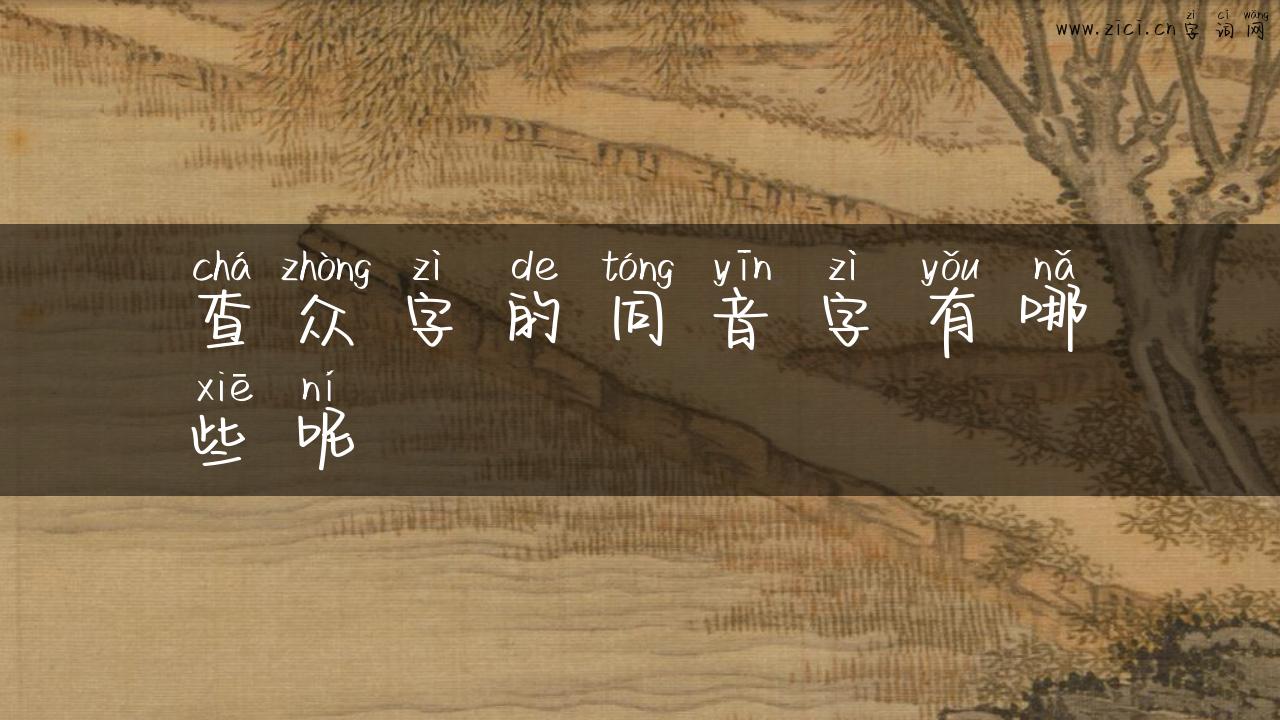 zì cí wǎng
www.zici.cn字词网
chá zhòng zì de tóng yīn zì yǒu nǎ
查众字的同音字有哪
xiē ní
些呢